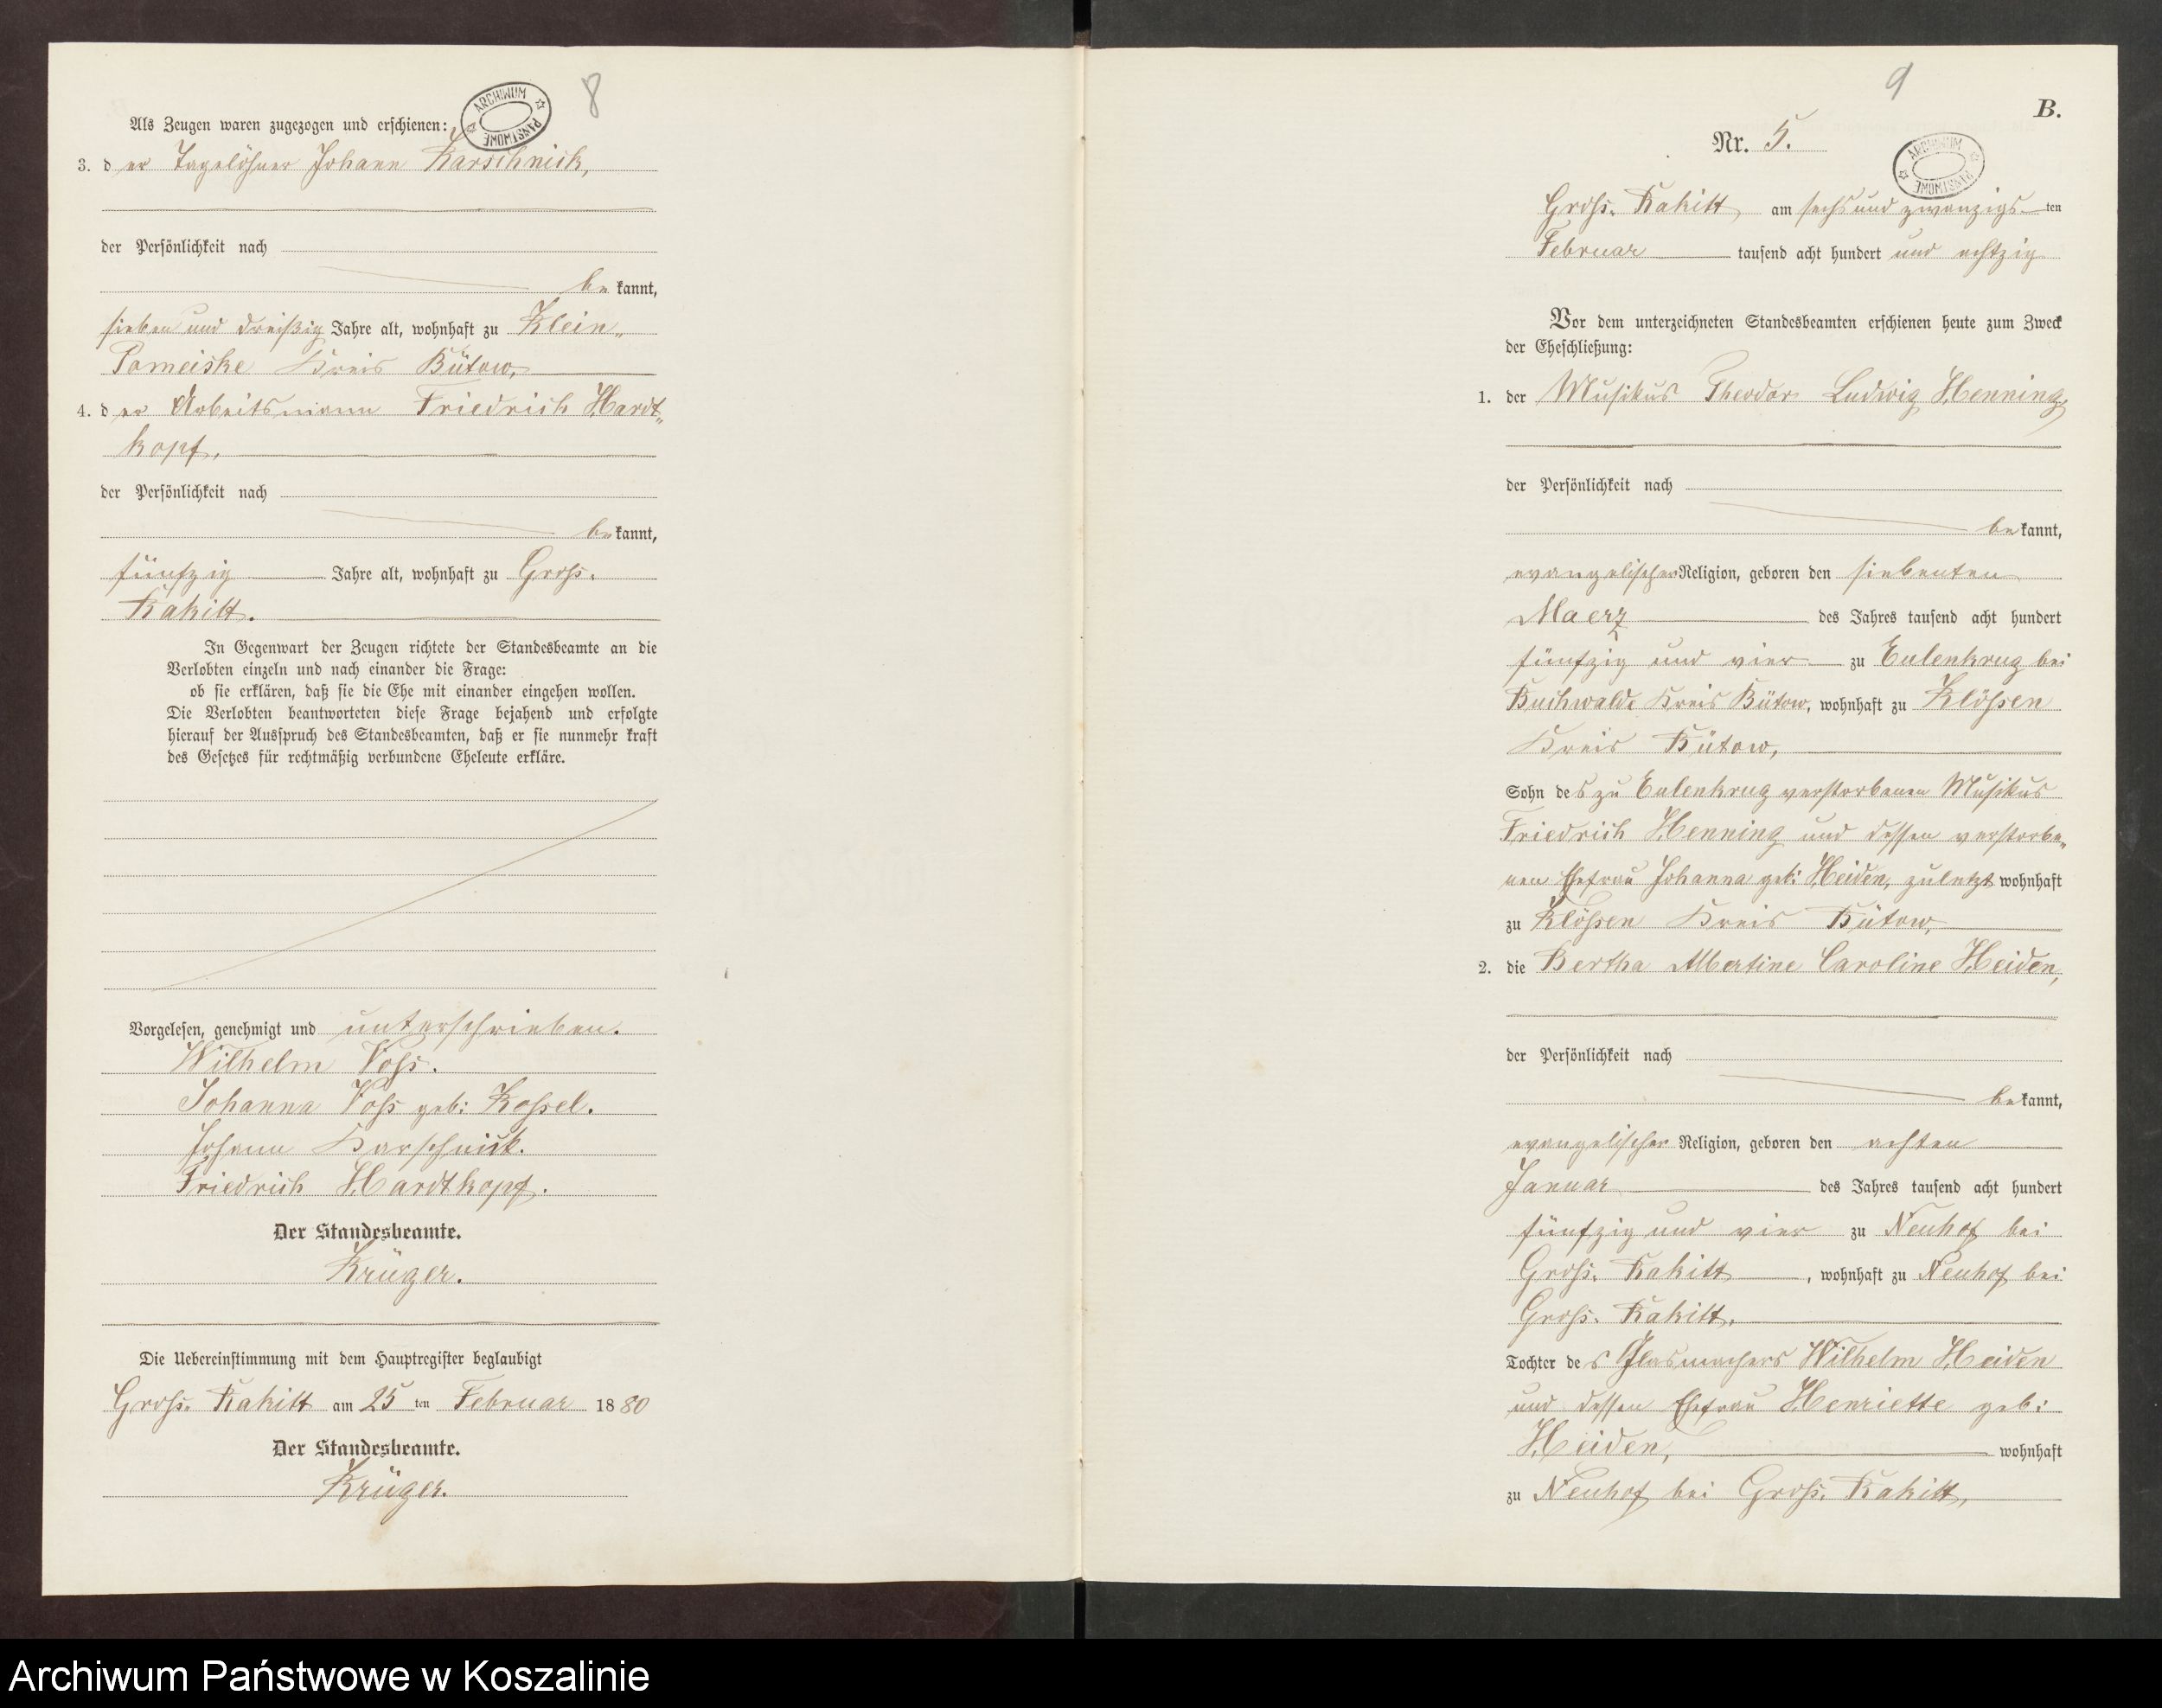 8
ARCHIWUM PAŃSTWOWE
Als Zeugen waren zugezogen und erschienen:
3. der Tagelöhner Johann Karschnick,
der Persönlichkeit nach
bekannt,
sieben und dreißig Jahre alt, wohnhaft zu Klein„
Pomeiske Kreis Bütow,
4. der Arbeitsmann Friedrich Hardt„
kopf,
der Persönlichkeit nach
bekannt,
fünfzig Jahre alt, wohnhaft zu Gross.
Rakitt.
In Gegenwart der Zeugen richtete der Standesbeamte an die
Verlobten einzeln und nach einander die Frage:
ob sie erklären, daß sie die Ehe mit einander eingehen wollen.
Die Verlobten beantworteten diese Frage bejahend und erfolgte
hierauf der Ausspruch des Standesbeamten, daß er sie nunmehr kraft
des Gesetzes für rechtmäßig verbundene Eheleute erkläre.
Vorgelesen, genehmigt und unterschrieben.
Wilhelm Voss.
Johanna Voss geb: Kossel.
Johann Karschnick.
Friedrich Hardtkopf.
Der Standesbeamte.
Krüger.
Die Uebereinstimmung mit dem Hauptregister beglaubigt
Gross. Rakitt am 25ten Februar 1880
Der Standesbeamte.
Krüger.
9
B.
Nr. 5.
ARCHIWUM PAŃSTWOWE
Gross. Rakitt am sechs und zwanzigsten
Februar tausend acht hundert und achtzig
Vor dem unterzeichneten Standesbeamten erschienen heute zum Zweck
der Eheschließung:
1. der Musikus Theodor Ludwig Henning,
der Persönlichkeit nach
bekannt,
evangelischer Religion, geboren den siebenten
Maerz des Jahres tausend acht hundert
fünfzig und vier zu Eulenkrug bei
Buchwalde Kreis Bütow, wohnhaft zu Klössen
Kreis Bütow,
Sohn des zu Eulenkrug verstorbenen Musikus
Friedrich Henning und dessen verstorbe„
nen Ehefrau Johanna geb: Heiden, zuletzt wohnhaft
zu Klössen Kreis Bütow,
2. die Bertha Albertine Caroline Heiden,
der Persönlichkeit nach
bekannt,
evangelischer Religion, geboren den achten
Januar des Jahres tausend acht hundert
fünfzig und vier zu Neuhof bei
Gross. Rakitt, wohnhaft zu Neuhof bei
Gross. Rakitt,
Tochter des Glasmachers Wilhelm Heiden
und dessen Ehefrau Henriette geb:
Heiden, wohnhaft
zu Neuhof bei Gross. Rakitt,
Archiwum Państwowe w Koszalinie